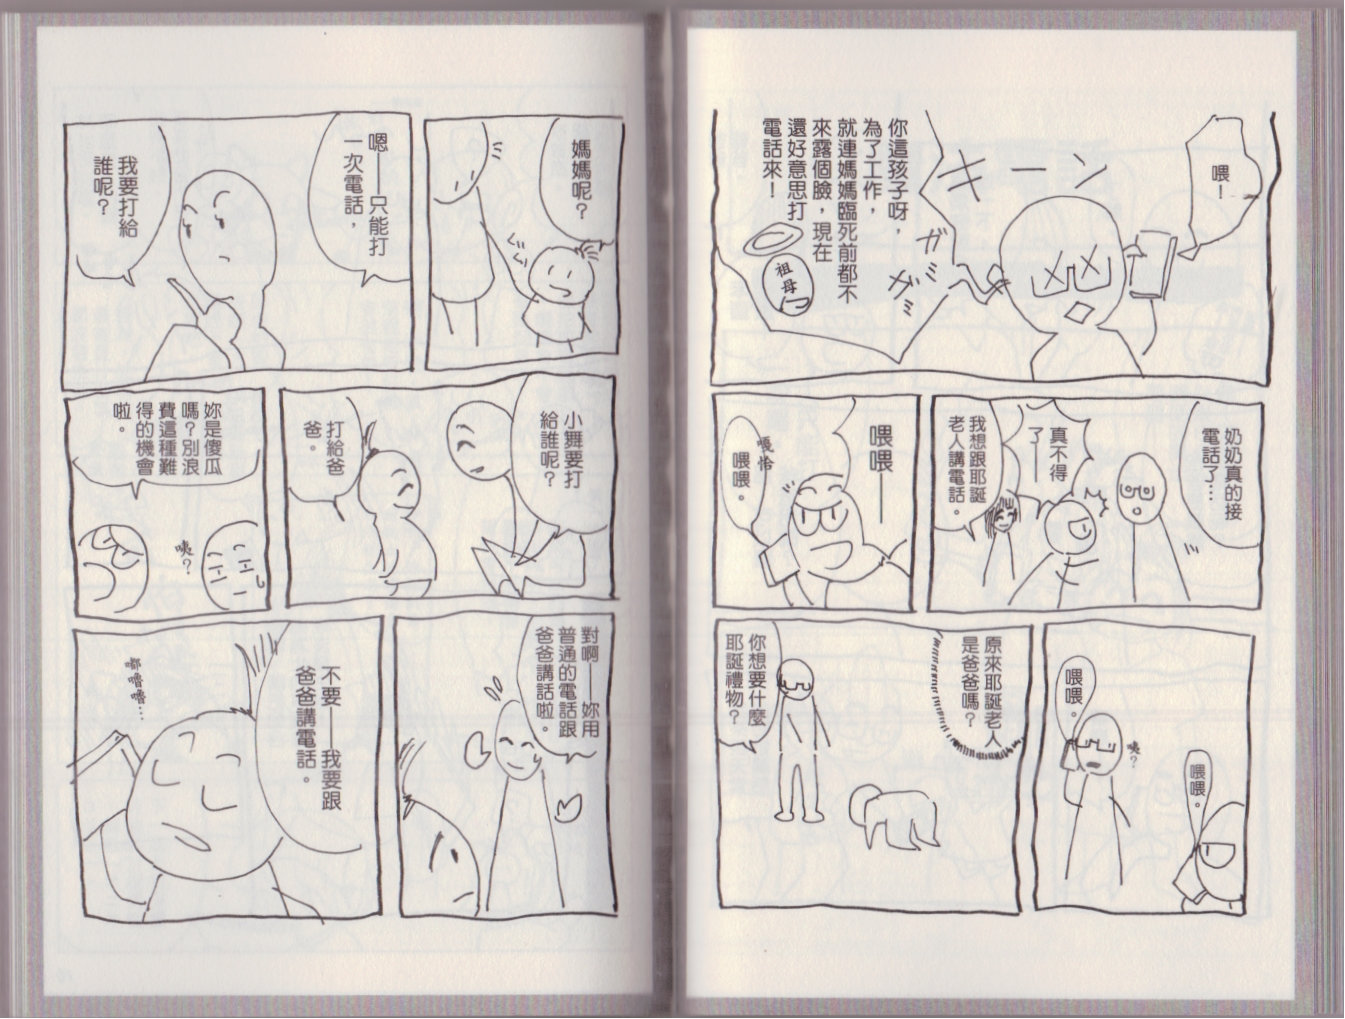 喂！
キーン
ガガミ
你這孩子呀，
為了工作，
就連媽媽臨死前都不
來露個臉，現在
還好意思打
電話來！
祖母
奶奶真的接
電話了…
真不得
了——
我想跟耶誕
老人講電話。
喂喂——
嘎恰
喂喂。
喂喂。
咦？
喂喂。
原來耶誕老人
是爸爸嗎？
你想要什麼
耶誕禮物？
媽媽呢？
嗯——只能打
一次電話，
我要打給
誰呢？
小舞要打
給誰呢？
打給爸
爸。
妳是傻瓜
嗎？別浪
費這種難
得的機會
啦。
咦？
對啊——妳用
普通的電話跟
爸爸講話啦。
不要——我要跟
爸爸講電話。
嘟嚕嚕…